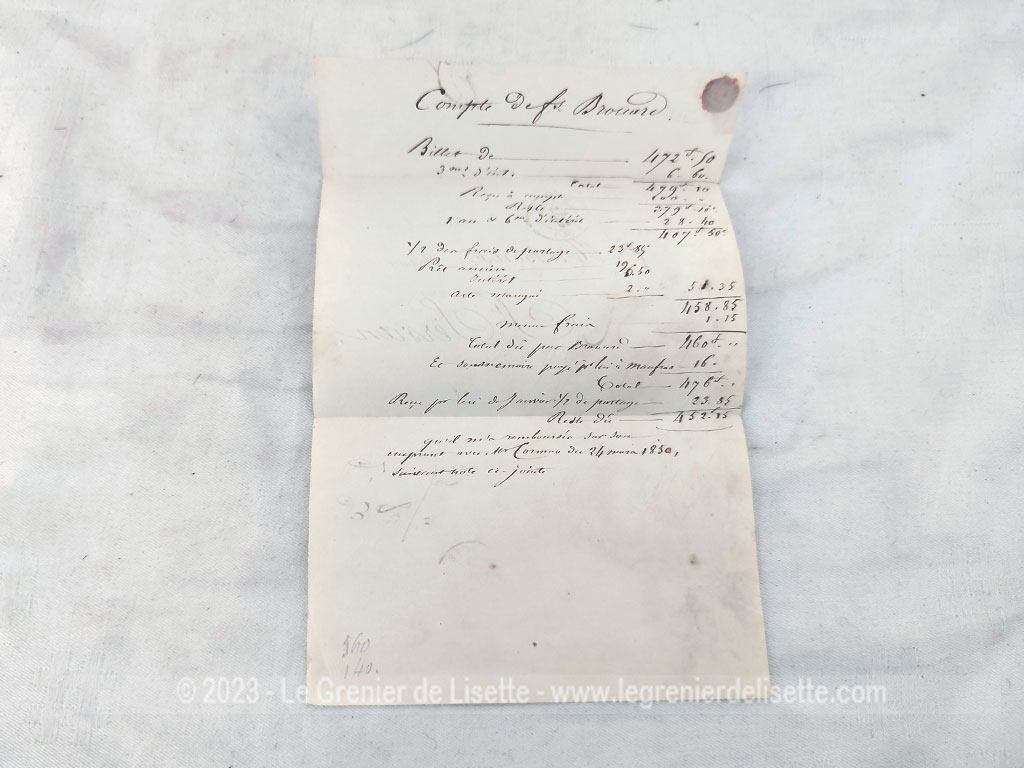 Compte de fs Brouard.
Billet de 472 f. 50
3 ms d'int. 6. 60.
Total 479 f. 10
Reçu à compte 100. "
Reste 379 f. 10 c.
1 an & 6 ms d'intérêt 28. 40
407 f 50 c.
1/2 des frais de partage 23 f. 85
Prêt ancien
Intérêt
acte manqué 2. " 51. 35
458. 85
menus frais 1. 15
Total dû par Brouard 460 f. "
Et payé pr lui à 16.
Total 476 f. "
Reçu pr lui de Janvier 1/2 de partage 23. 85
Reste dû 452 f. 15
qu'il m'a remboursée sur son
emprunt avec Mr du 24 mars 1850,
suivant note ci-jointe
560
140.
© 2023 - Le Grenier de Lisette - www.legrenierdelisette.com